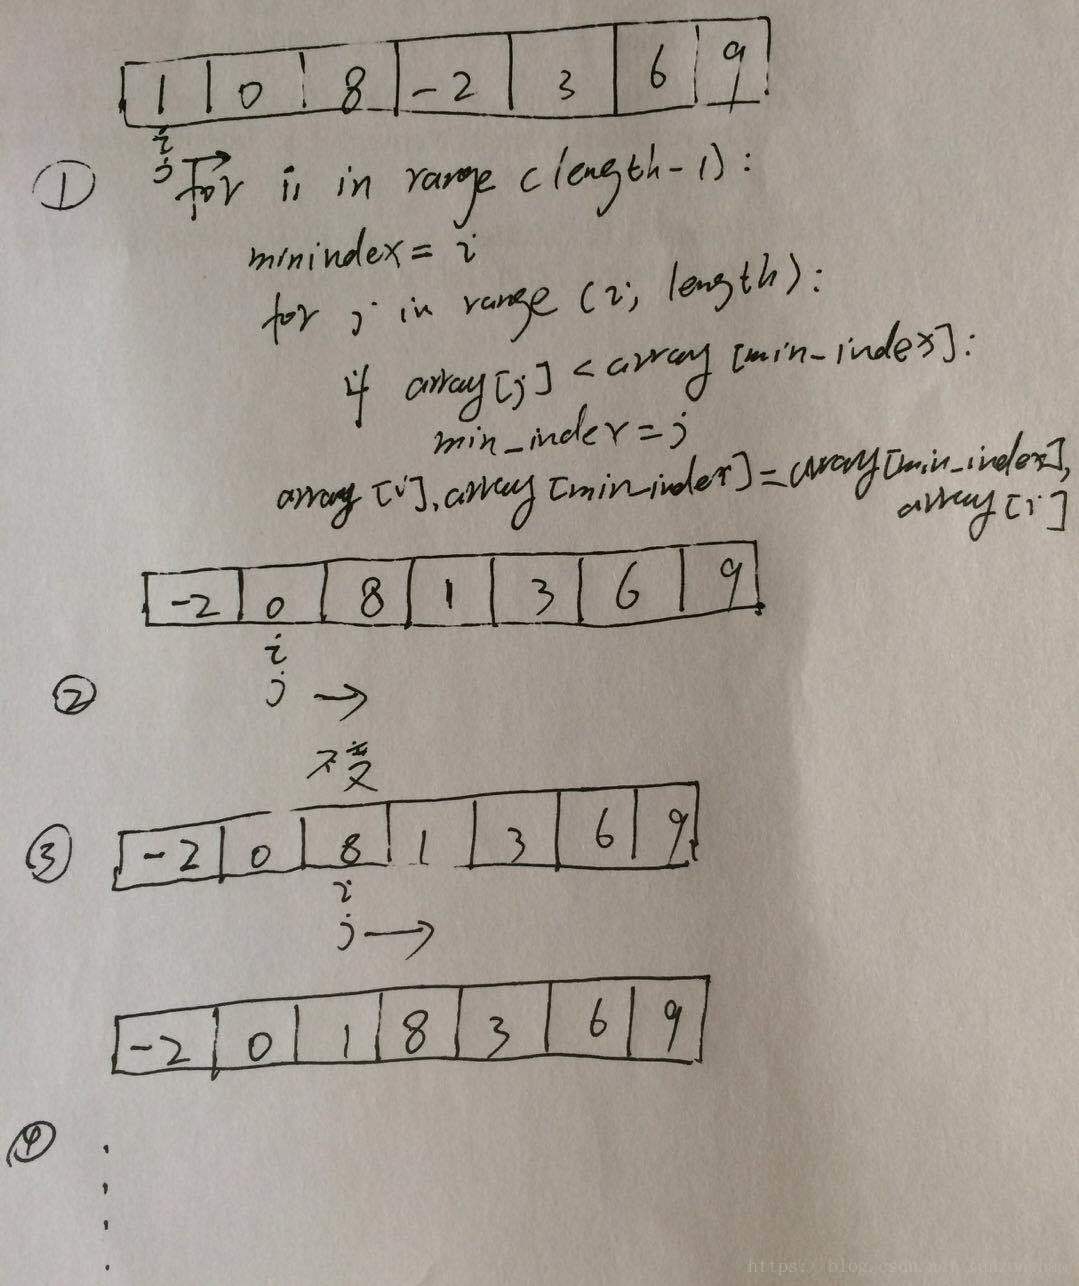 1 0 8 -2 3 6 9
i
j
① for i in range (length-1):
minindex = i
for j in range (i, length):
if array[j] < array [min_index]:
min_index = j
array [i], array [min_index] = array [min_index],
array [i]
-2 0 8 1 3 6 9
i
② j →
不变
③ -2 0 8 1 3 6 9
i
j →
-2 0 1 8 3 6 9
④
https://blog.csdn.net/